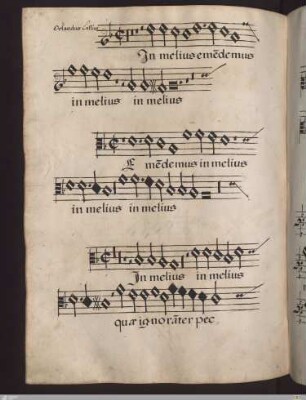 Orlandus Lassus
In melius emēdemus
in melius in melius
E mēdemus in melius
in melius in melius
In melius in melius
quæ ignorāter pec